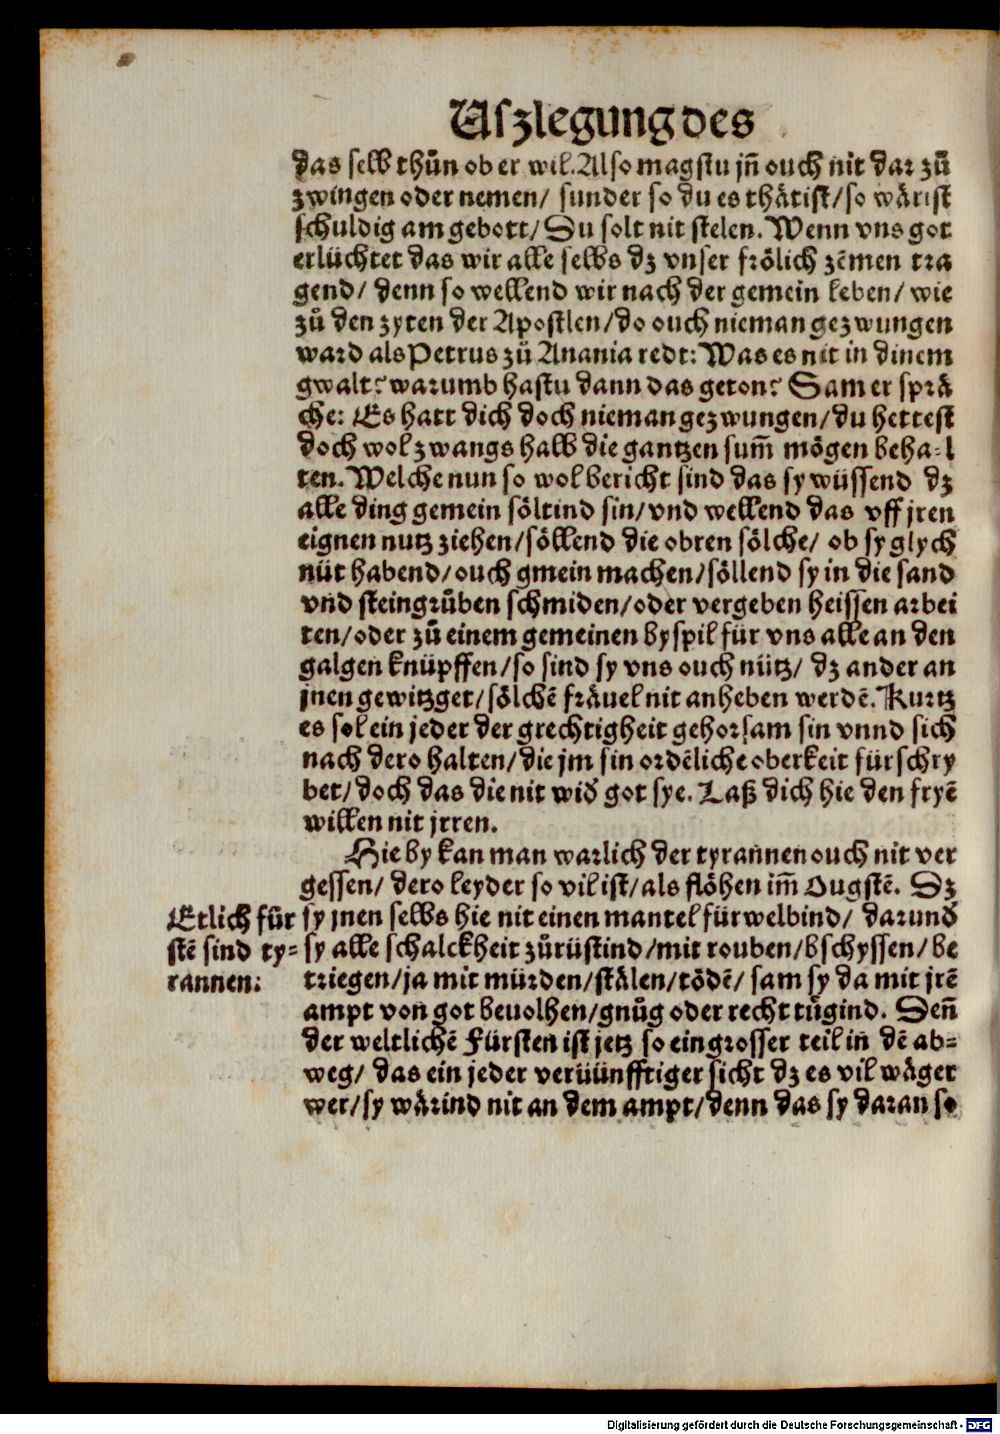 Uszlegung des
das selb thůn ob er wil. Also magstu jñ ouch nit dar zů
zwingen oder nemen/ sunder so du es thätist/so wärist
schuldig am gebott/ Du solt nit stelen. Wenn vns got
erlüchtet das wir alle selbs dz vnser frölich zēmen tra
gend/ denn so wellend wir nach der gemein leben/ wie
zů den zyten der Apostlen/do ouch nieman gezwungen
ward als Petrus zů Anania redt: Was es nit in dinem
gwalt? warumb hastu dann das geton? Sam er sprä
che: Es hatt dich doch nieman gezwungen/du hettest
doch wol zwangs halb die gantzen sum̄ mögen beha-l
ten. Welche nun so wol bericht sind das sy wüssend dz
alle ding gemein söltind sin/vnd wellend das vff jren
eignen nutz ziehen/söllend die obren sölche/ ob sy glych
nüt habend/ouch gmein machen/söllend sy in die sand
vnd steingrůben schmiden/oder vergeben heissen arbei
ten/oder zů einem gemeinen byspil für vns alle an den
galgen knüpffen/so sind sy vns ouch nütz/ dz ander an
jnen gewitzget/sölchē fräuel nit anheben werdē. Kurtz
es sol ein jeder der grechtigheit gehorsam sin vnnd sich
nach dero halten/die jm sin ordēliche oberkeit fürschry
bet/doch das die nit wid̕ got sye. Laß dich hie den fryē
willen nit jrren.
Hie by kan man warlich der tyrannen ouch nit ver
gessen/ dero leyder so vil ist/als flöhen im̄ Ougstē. Dz
sy jnen selbs hie nit einen mantel fürwelbind/ darund̕
sy alle schalckheit zůrüstind/mit rouben/bschyssen/be
triegen/ja mit mürden/stälen/tödē/ sam sy da mit jrē
ampt von got beuolhen/gnůg oder recht tůgind. Deñ
der weltlichē Fürsten ist jetz so ein grosser teil in dē ab-
weg/ das ein jeder verüünfftiger sicht dz es vil wäger
wer/sy wärind nit an dem ampt/denn das sy daran so
Etlich für
stē sind ty-
rannen:
Digitalisierung gefördert durch die Deutsche Forschungsgemeinschaft - DFG